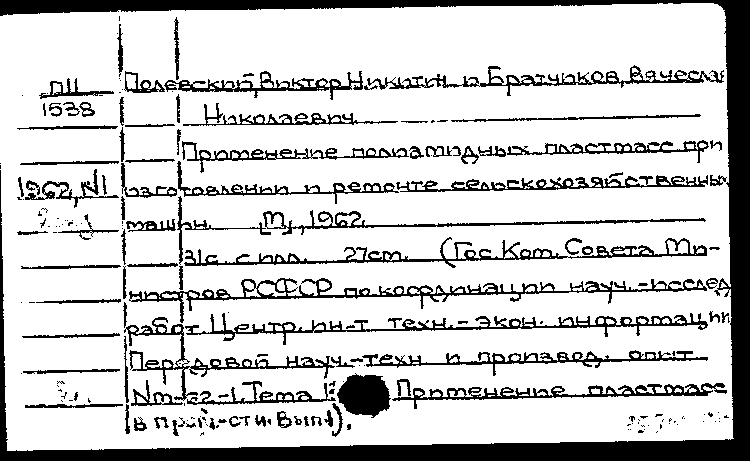 П11
1538
Полевский, Виктор Никитич и Братчиков, Вячеслав
Николаевич
Применение полиамидных пластмасс при
1962, №1 изготовлении и ремонте сельскохозяйственных
машин. [М], 1962.
31с. с илл. 27см. (Гос. Ком. Совета Ми-
нистров РСФСР по координации науч.-исслед
работ. Центр. ин-т техн.-экон. информации
Передовой науч.-техн и производ. опыт
№m-62-1. Тема Применение пластмасс
в пром-сти. Вып1).